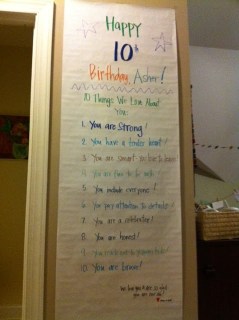 Happy
10th
Birthday, Asher!
10 Things We Love About
You:
1. You are strong!
2. You have a tender heart!
3. You are smart
4. You are fun to be with
5. You include everyone!
6. You pay attention to details!
7. You are a celebrator!
8. You are honest!
9.
10. You are brave!